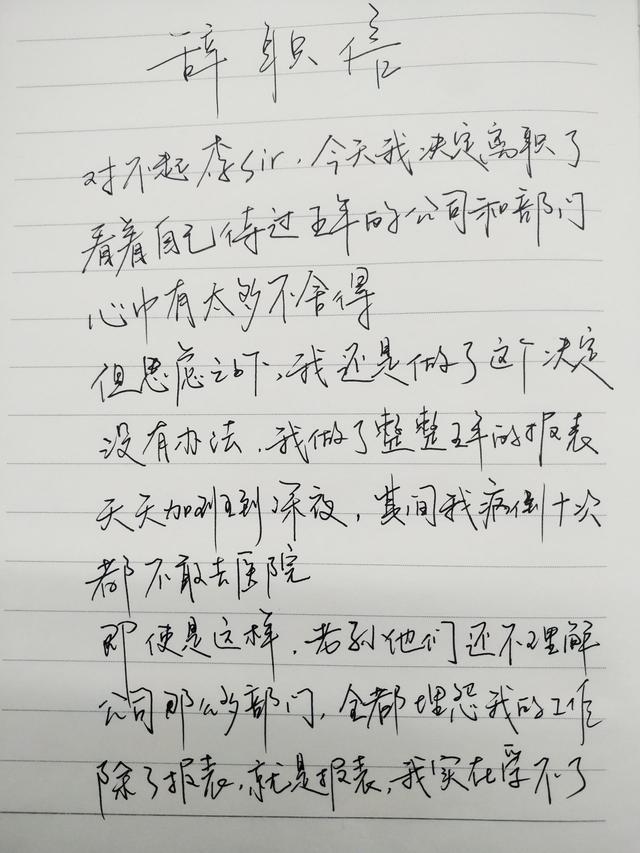 辞职信
对不起李Sir，今天我决定离职了
看着自己待过五年的公司和部门
心中有太多不舍得
但思虑之下，我还是做了这个决定
没有办法，我做了整整五年的报表
天天加班到深夜，其间我病倒十次
都不敢去医院
即使是这样，老孙他们还不理解
公司那么多部门，全都埋怨我的工作
除了报表，就是报表，我实在受不了